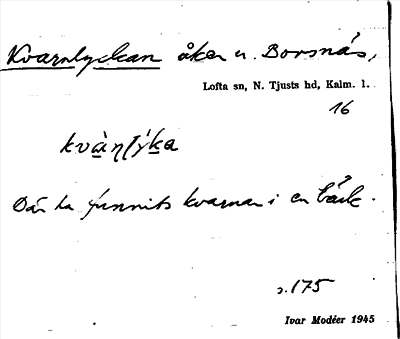 Kvarnlyckan åker u. Borsnäs,
Lofta sn, N. Tjusts hd, Kalm. l.
16
Där ha funnits kvarnar i en bäck.
s. 175
Ivar Modéer 1945